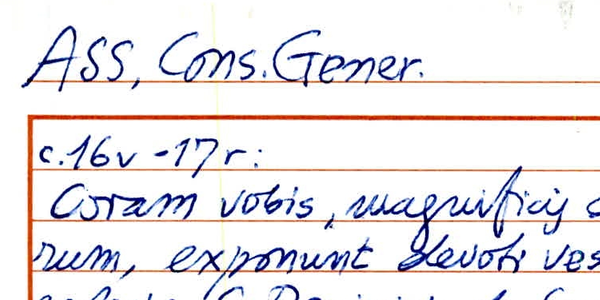 ASS, Cons. Gener.
c. 16v - 17r:
Coram vobis, magnificis
rum, exponunt devoti ves